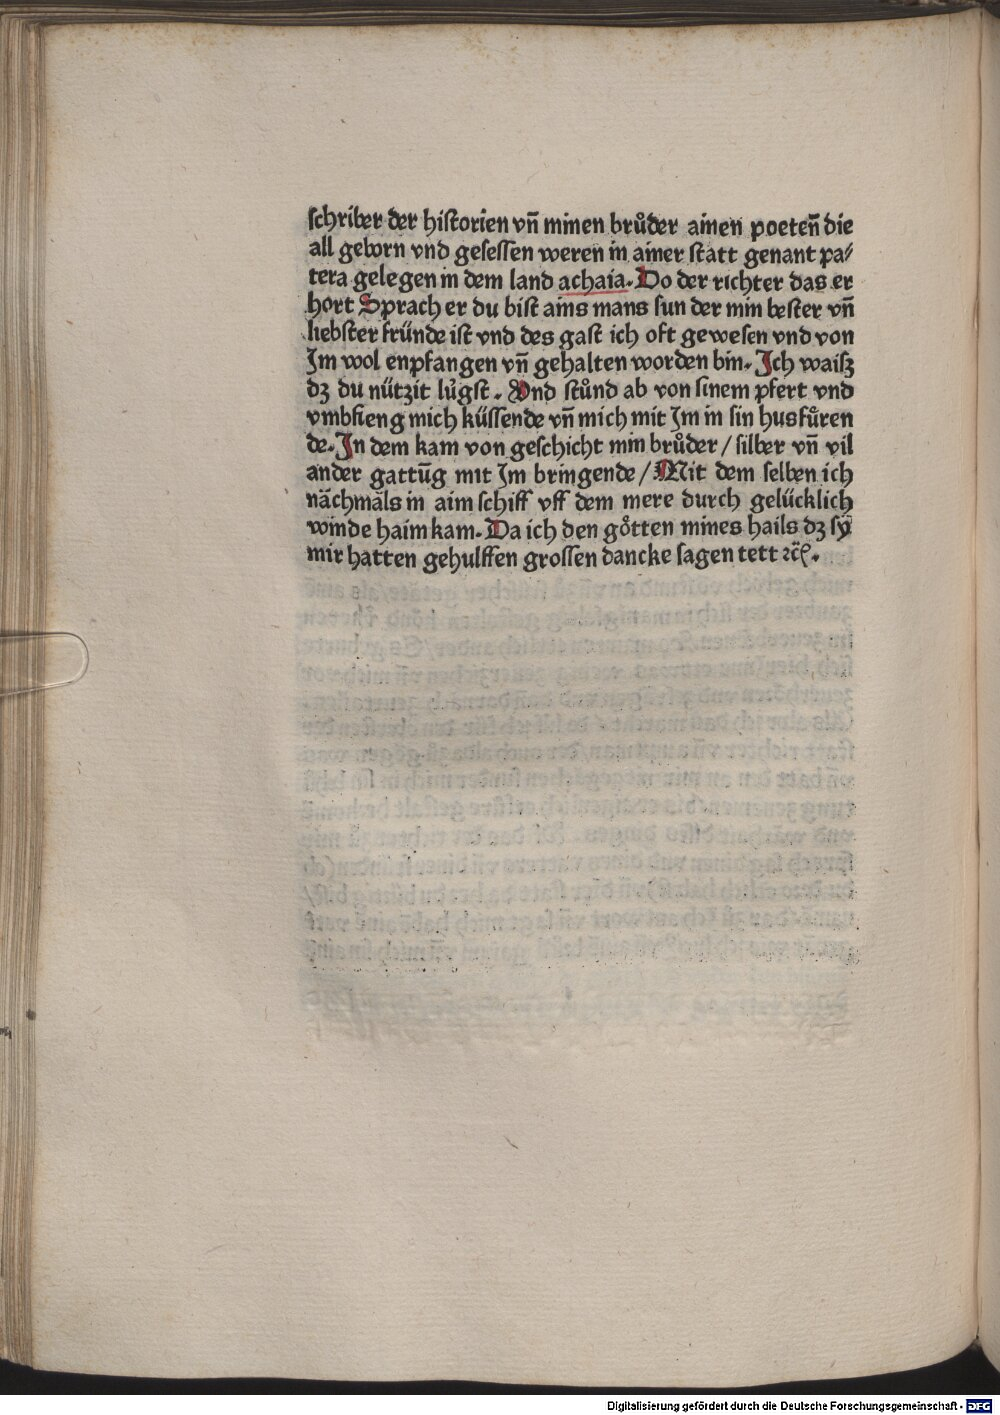 schriber der historien vn̄ minen brůder ainen poeten̄ die
all geborn vnd gesessen weren in ainer statt genant pa⸗
tera gelegen in dem land achaia. Do der richter das er
hort Sprach er du bist ains mans sun der min bester vn̄
liebster fründe ist vnd des gast ich oft gewesen vnd von
Im wol enpfangen vn̄ gehalten worden bin. Ich waisz
dz du nützit lu̇gst. Vnd stůnd ab von sinem pfert vnd
vmbfieng mich küssende vn̄ mich mit Im in sin husfůren
de. In dem kam von geschicht min brůder / silber vn̄ vil
ander gattūg mit Im bringende / Mit dem selben ich
nāchmāls in aim schiff vff dem mere durch gelücklich
winde haim kam. Da ich den götten mines hails dz sÿ
mir hatten gehulffen grossen dancke sagen tett ꝛc̄.
Digitalisierung gefördert durch die Deutsche Forschungsgemeinschaft - DFG